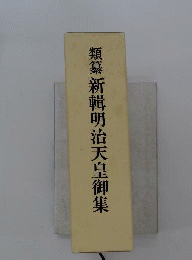 類纂新輯明治天皇御集